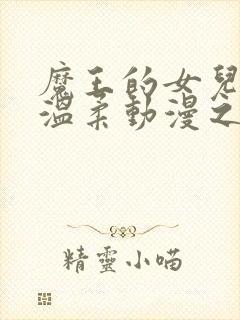 魔王的女兒
溫柔動漫之
精靈小喵